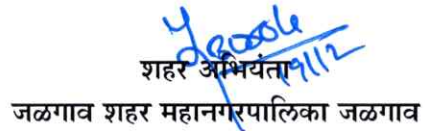 19/12
शहर अभियंता
जळगाव शहर महानगरपालिका जळगाव